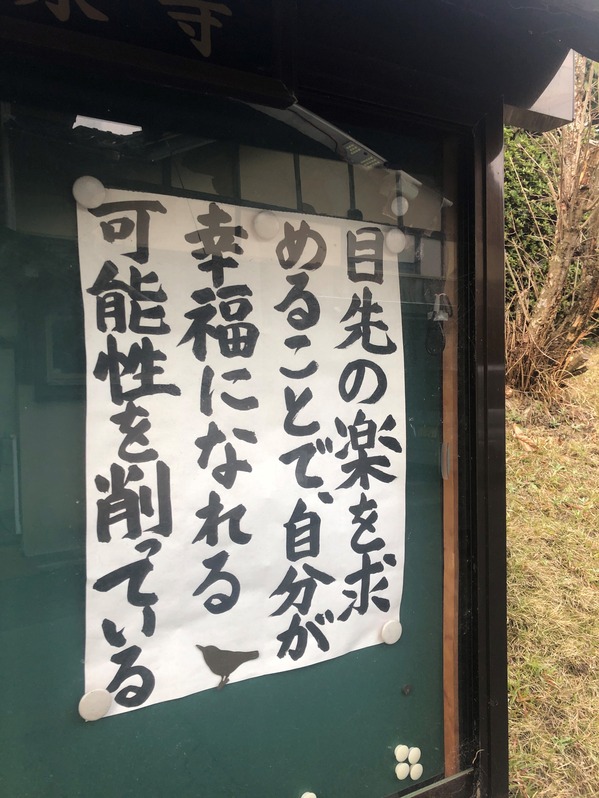 目先の楽を求
めることで、自分が
幸福になれる
可能性を削っている
寺